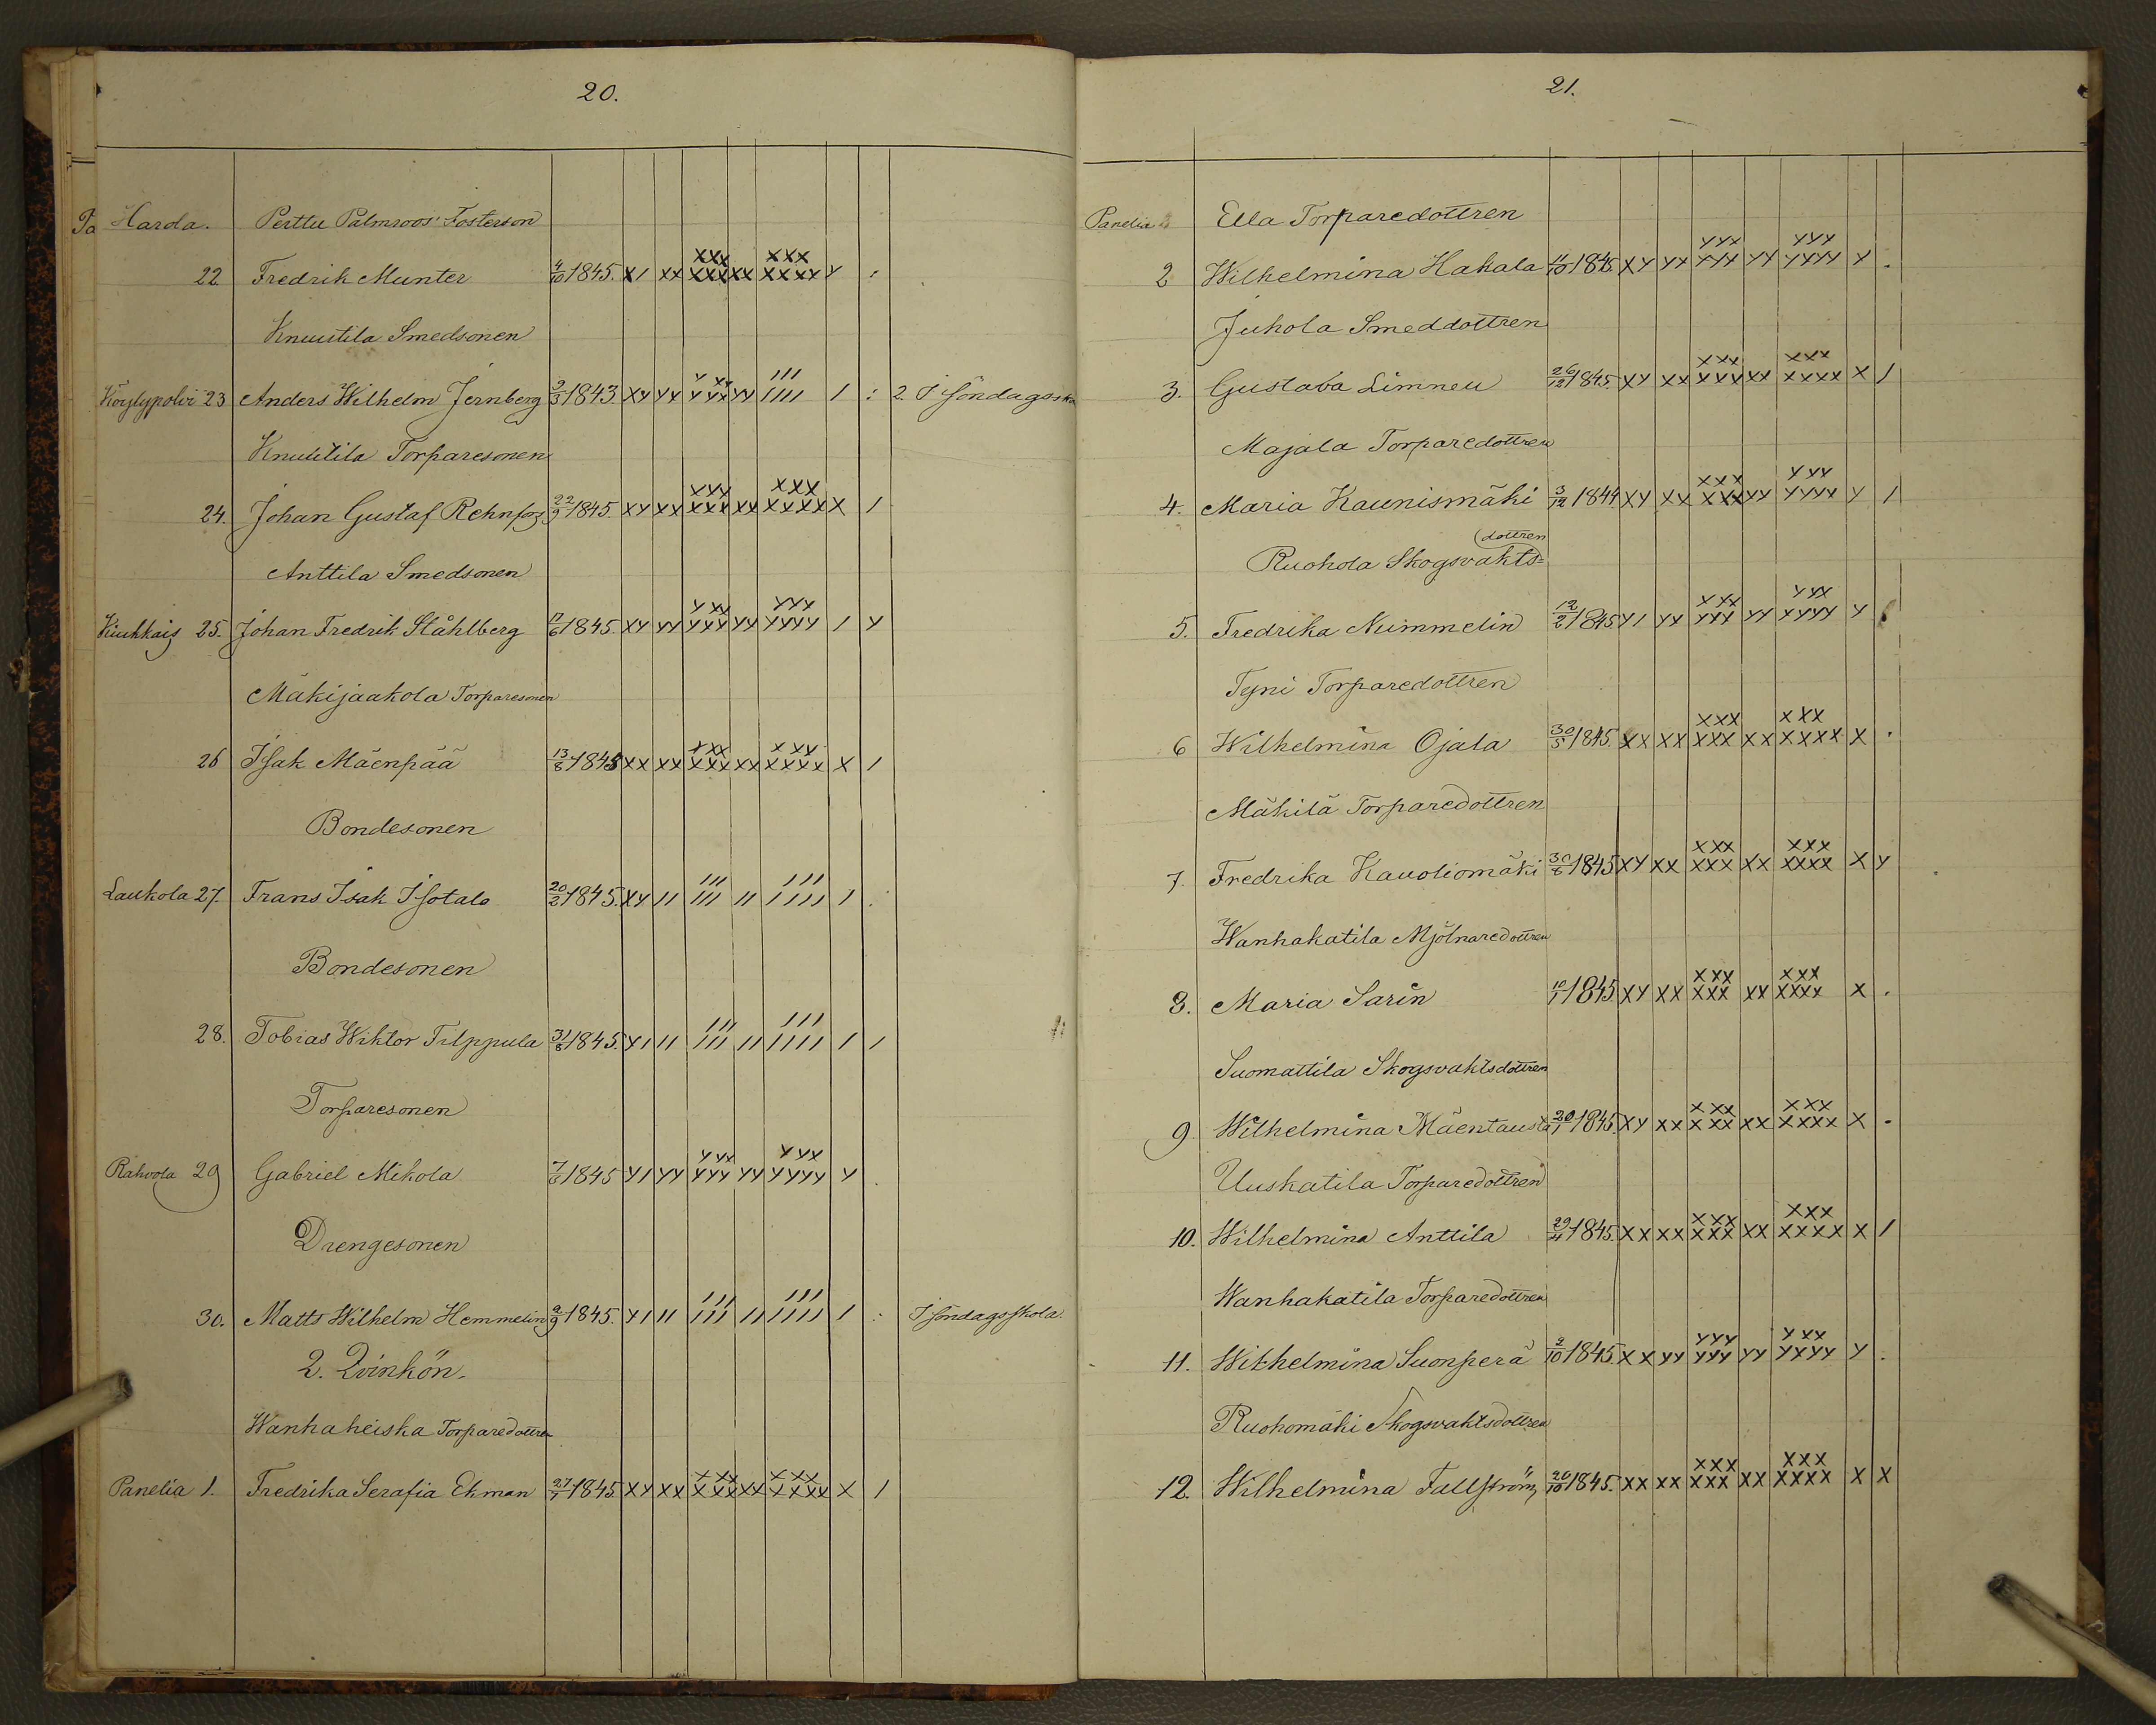 20.
Harola. Perttu Palmroos' Fosterson
22 Fredrik Munter 4/10 1845. x/ xx xxx xxx xx xxx xxxx y :
Knuutila Smedsonen
Köylypolvi 23 Anders Wilhelm Jernberg 9/3 1843. xy yy yxx yyx yy /// //// / : 2 I söndagsska
Knuutila Torparesonen
24. Johan Gustaf Rehnfors 22/9 1845. xy xx xxx xxx xx xxx xxxx x /
Anttila Smedsonen
Kiukkais 25. Johan Fredrik Ståhlberg 17/6 1845. xy yy yxx yyy yy yyy yyyy / y
Mäkijaakola Torparesonen
26 Isak Mäenpää 13/8 1845 xx xx xxx xxx xx xxx xxxx x /
Bondesonen
Laukola 27. Frans Isak Isotalo 20/2 1845. xy // /// /// // /// //// / .
Bondesonen
28. Tobias Wiktor Tilppula 31/8 1845. y/ // /// /// // /// //// / /
Torparesonen
Rahvola 29 Gabriel Mikola 7/6 1845 y/ yy yyx yyy yy yyx yyyy y .
Drengesonen
30. Matts Wilhelm Hemmelin 9/9 1845. y/ // /// /// // /// //// / : I söndagsskola.
2. Qvinkön.
Wanhaheiska Torparedottren
Panelia 1. Fredrika Serafia Ekman 27/7 1845. xy xx xxx xxx xx xxx xxxx x /
21.
Panelia Ella Torparedottren
2 Wilhelmina Hakala 11/10 1845. xy yx yyx yyy yy yyy yyyy y .
Juhola Smeddottren
3. Gustava Limneu 26/12 1845. xy xx xxx xxx xx xxx xxxx x /
Majala Torparedottren
4. Maria Kaunismäki 3/12 1844. xy xx xxx xxx yy yyy yyyy y /
Ruohola Skogsvakts=
(dottren
5. Fredrika Nummelin 12/2 1845 y/ yx yyx yyy yy yyx yyyy y
Tyni Torparedottren
6 Wilhelmina Ojala 30/5 1845. xx xx xxx xxx xx xxx xxxx x .
Mäkilä Torparedottren
7. Fredrika Kauoliomäki 30/6 1845 xy xx xxx xxx xx xxx xxxx x y
Wanhakatila Mjölnaredottren
8. Maria Sarin 10/1 1845 xy xx xxx xxx xx xxx xxxx x .
Suomattila Skogsvaktsdottren
9. Wilhelmina Mäentausta 20/1 1845. xy xx xxx xxx xx xxx xxxx x .
Uuskatila Torparedottren
10. Wilhelmina Anttila 29/11 1845. xx xx xxx xxx xx xxx xxxx x /
Wanhakatila Torparedottren
11. Wilhelmina Suonperä 2/10 1845. xx yy yyy yyy yy yxx yyyy y .
Ruohomäki Skogsvaktsdottren
12. Wilhelmina Fallström 20/10 1845. xx xx xxx xxx xx xxx xxxx x x